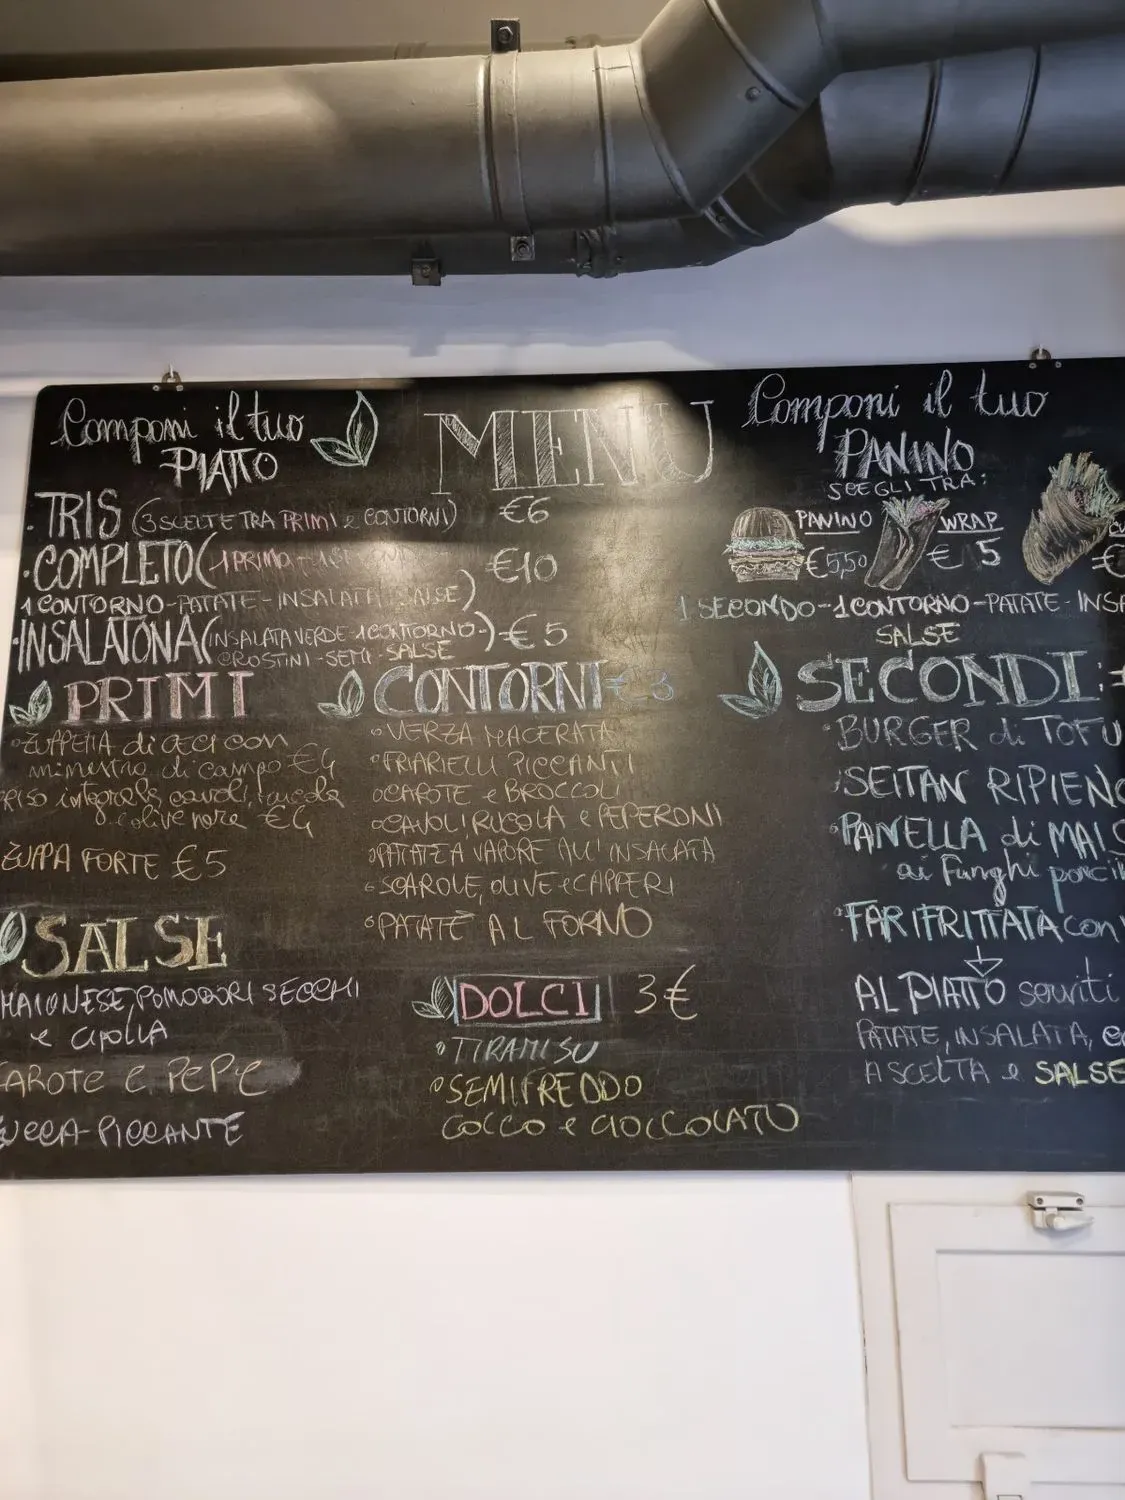 Componi il tuo
PIATTO
· TRIS (3 SCELTE TRA PRIMI e CONTORNI) €6
· COMPLETO (1 PRIMO - 1 €10
1 CONTORNO - PATATE - INSALATA SALSE)
· INSALATONA (INSALATA VERDE - 1 CONTORNO -) € 5
CROSTINI - SEMI - SALSE
PRIMI
ZUPPETTA di ceci con
minestra di campo €4
riso integrale cavoli, rucola
e olive nere €4
ZUPPA FORTE €5
SALSE
MAIONESE, POMODORI SECCHI
e CIPOLLA
CAROTE e PEPE
ZUCCA PICCANTE
MENU
CONTORNI € 3
VERZA MACERATA
FRIARIELLI PICCANTI
CAROTE e BROCCOLI
CAVOLI RUCOLA e PEPERONI
PATATE A VAPORE ALL'INSALATA
SCAROLE, OLIVE e CAPPERI
PATATE AL FORNO
DOLCI 3€
TIRAMISU
SEMIFREDDO
COCCO e CIOCCOLATO
Componi il tuo
PANINO
SCEGLI TRA:
PANINO WRAP
€5,50 € 5 €
1 SECONDO - 1 CONTORNO - PATATE - INSA
SALSE
SECONDI:
BURGER di TOFU
SEITAN RIPIENO
PANELLA di MAIS
ai Funghi porcin
FARIFRITTATA con
AL PIATTO serviti
PATATE, INSALATA,
A SCELTA e SALSE